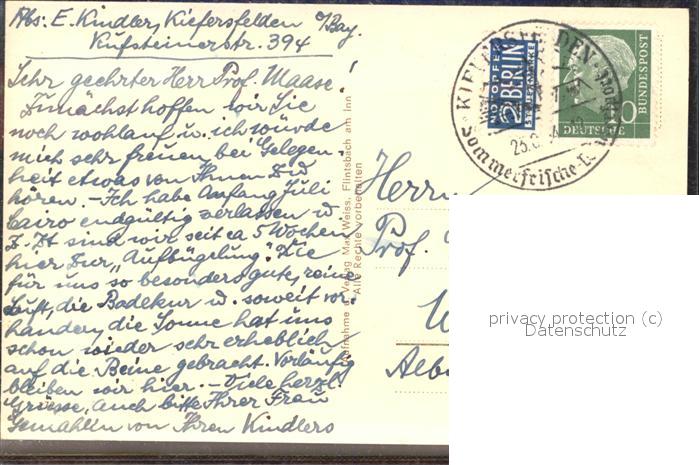 Abs: E. Kindler, Kiefersfelden o/Bay.
Kufsteinerstr. 394
Sehr geehrter Herr Prof. Maase!
Zunächst hoffen wir Sie
noch wohlauf u. ich würde
mich sehr freuen bei Gelegen-
heit etwas von Ihnen zu
hören. - Ich habe Anfang Juli
Cairo endgültig verlassen u.
z. Zt sind wir seit ca 5 Wochen
hier zur „Aufbügelung". Die
für uns so besonders gute, reine
Luft, die Badekur u. soweit vor-
handen, die Sonne hat uns
schon wieder sehr erheblich
auf die Beine gebracht. Vorläufig
bleiben wir hier. - Viele herzl.
Grüsse, auch bitte Ihrer Frau
Gemahlin von Ihren Kindlers
Aufnahme u. Verlag Max Weiss, Flintsbach am Inn
Alle Rechte vorbehalten
NOTOPFER
2 BERLIN
STEUERMARKE
DEUTSCHE
BUNDESPOST
10
KIEFERSFELDEN
Sommerfrische
Herrn
Prof.
W
Albe
privacy protection (c)
Datenschutz